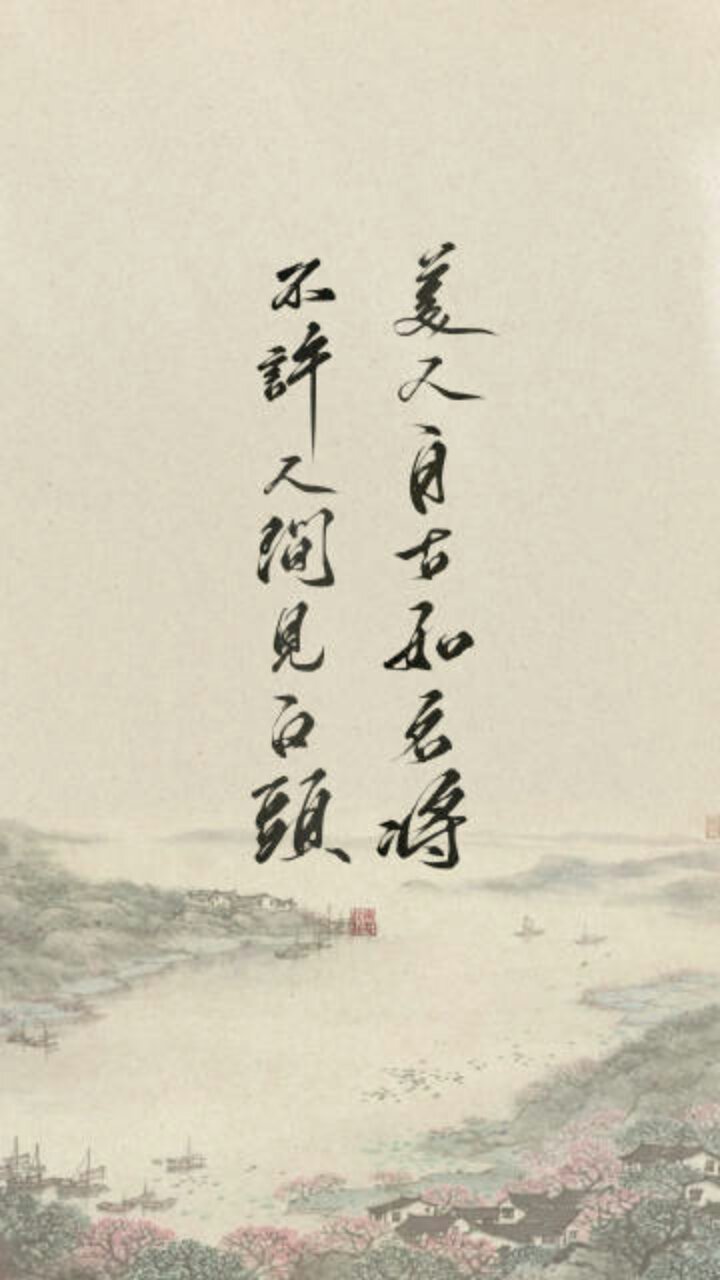 美人自古如名將
不許人間見白頭